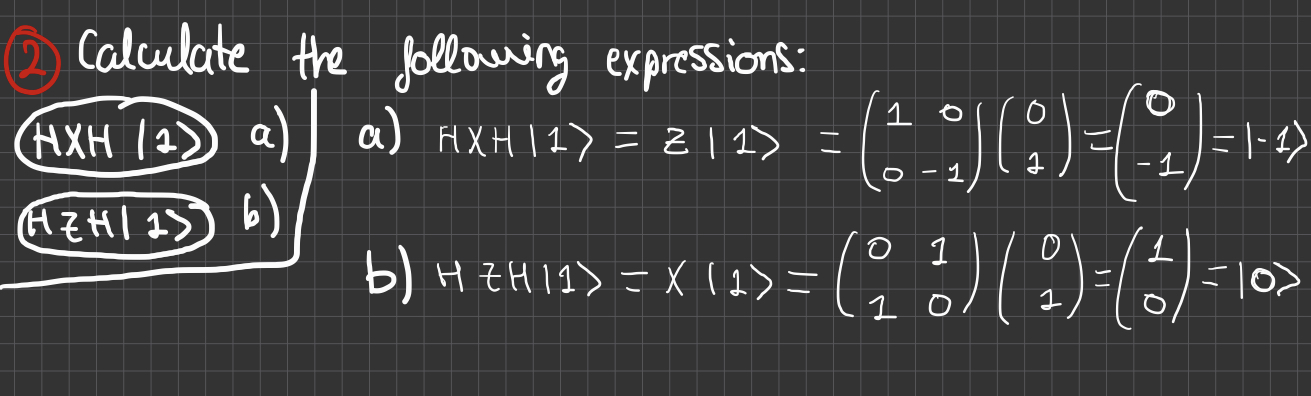 2 Calculate the following expressions:
HXH |1> a)
HZH|1> b)
a) HXH|1> = Z|1> = (1 0 0 -1)(0 1) = (0 -1) = |-1>
b) HZH|1> = X|1> = (0 1 1 0)(0 1) = (1 0) = |0>